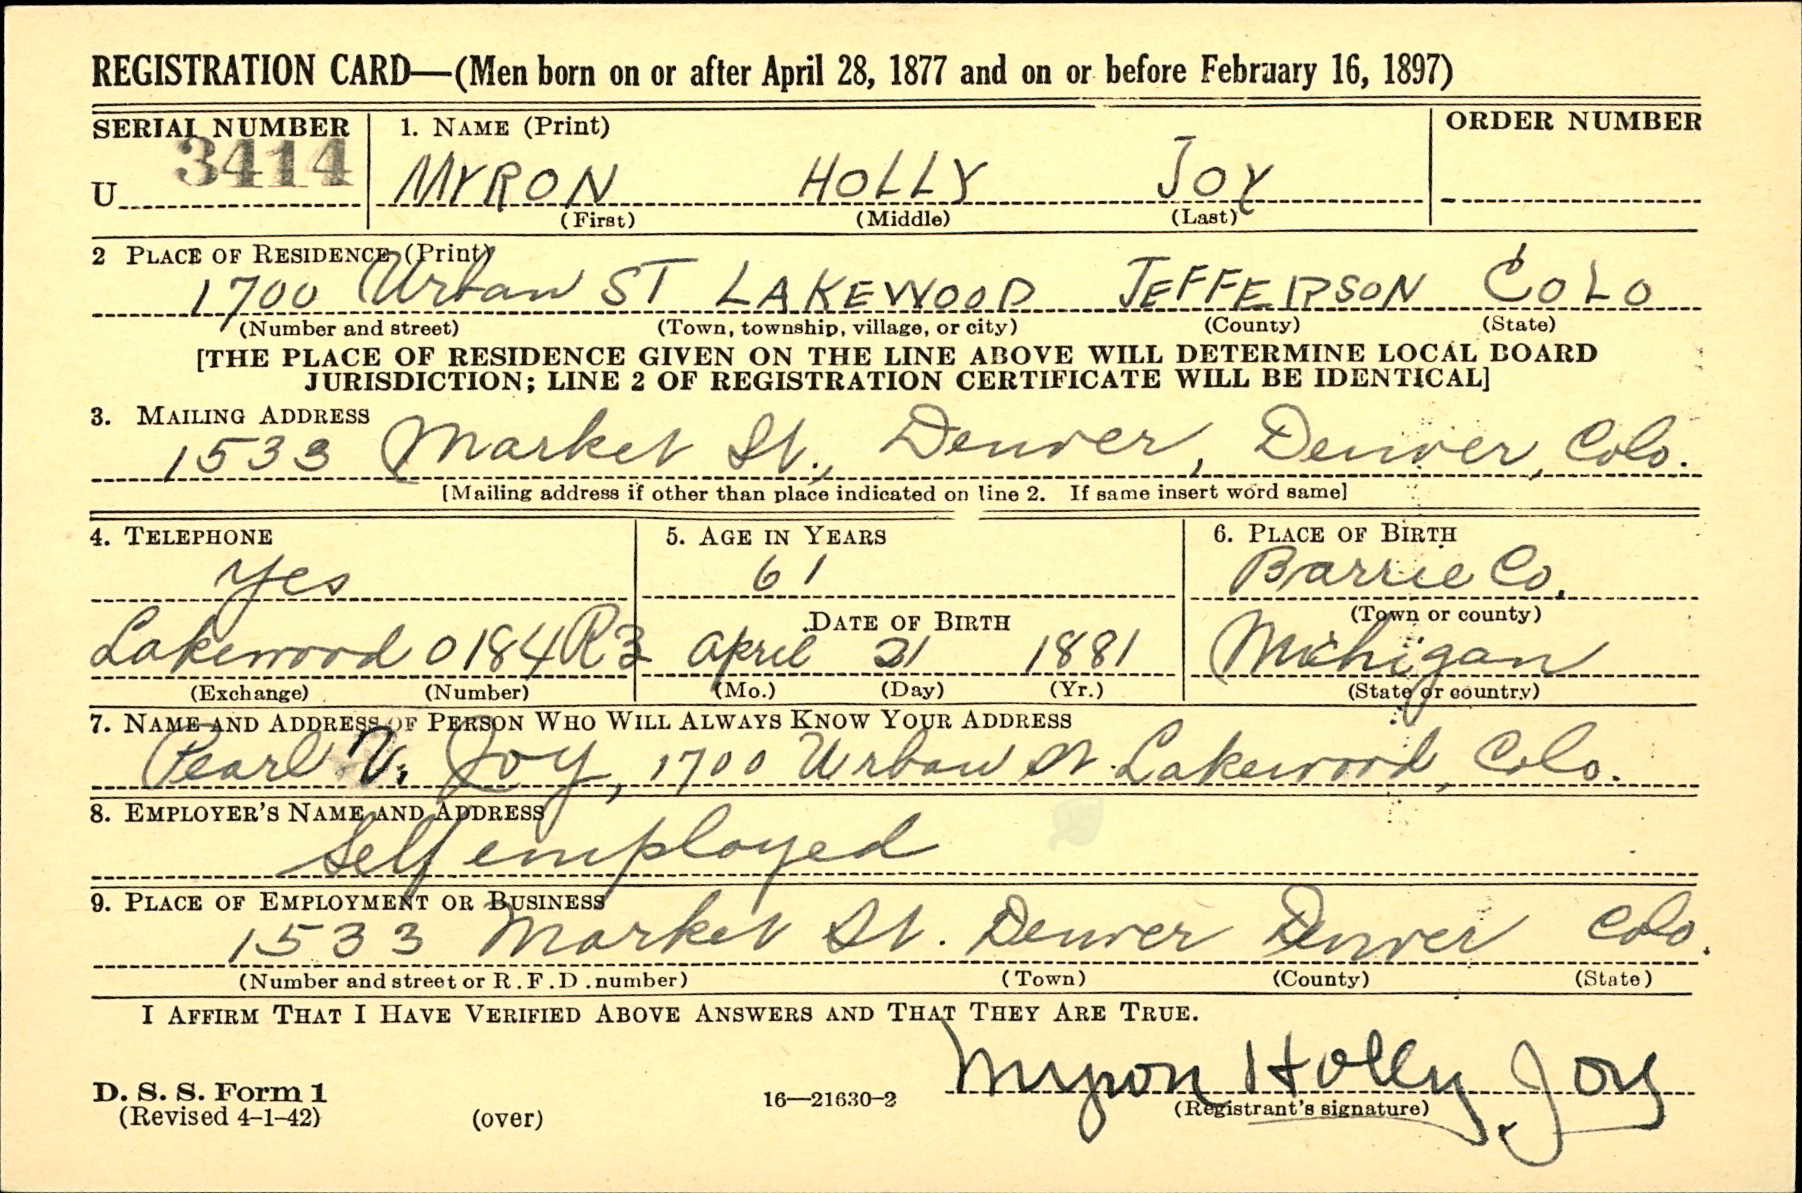 REGISTRATION CARD—(Men born on or after April 28, 1877 and on or before February 16, 1897)
SERIAL NUMBER 1. NAME (Print) ORDER NUMBER
U 3414 MYRON HOLLY JOY
(First) (Middle) (Last)
2 PLACE OF RESIDENCE (Print)
1700 Urban ST LAKEWOOD JEFFERSON COLO
(Number and street) (Town, township, village, or city) (County) (State)
[THE PLACE OF RESIDENCE GIVEN ON THE LINE ABOVE WILL DETERMINE LOCAL BOARD
JURISDICTION; LINE 2 OF REGISTRATION CERTIFICATE WILL BE IDENTICAL]
3. MAILING ADDRESS
1533 Market St., Denver, Denver, Colo.
[Mailing address if other than place indicated on line 2. If same insert word same]
4. TELEPHONE 5. AGE IN YEARS 6. PLACE OF BIRTH
Yes 61 Barrie Co.
DATE OF BIRTH (Town or county)
Lakewood 0184R3 April 21 1881 Michigan
(Exchange) (Number) (Mo.) (Day) (Yr.) (State or country)
7. NAME AND ADDRESS OF PERSON WHO WILL ALWAYS KNOW YOUR ADDRESS
Pearl V. Joy, 1700 Urban St. Lakewood, Colo.
8. EMPLOYER'S NAME AND ADDRESS
Self employed
9. PLACE OF EMPLOYMENT OR BUSINESS
1533 Market St. Denver Denver Colo.
(Number and street or R.F.D. number) (Town) (County) (State)
I AFFIRM THAT I HAVE VERIFIED ABOVE ANSWERS AND THAT THEY ARE TRUE.
Myron Holly Joy
D. S. S. Form 1
(Revised 4-1-42) (over) 16—21630-2 (Registrant's signature)